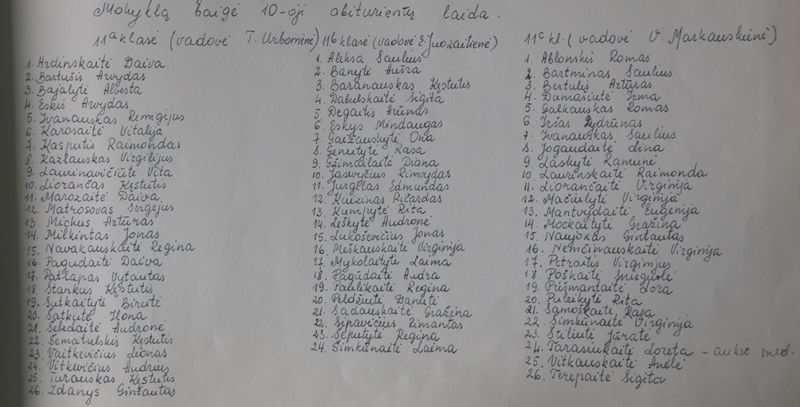 Mokyklą baigė 10-oji abiturientų laida.
11a klasė (vadovė T. Urbonienė)
1. Ardinskaitė Daiva
2. Bartušis Arvydas
3. Bajalytė Alberta
4. Eskis Arvydas
5. Ivanauskas Remigijus
6. Karosaitė Vitalija
7. Kasputis Raimondas
8. Kazlauskas Virgilijus
9. Laurinavičiūtė Vita
10. Liorančas Kęstutis
11. Marozaitė Daiva
12. Matrosovas Sergejus
13. Michus Artūras
14. Milkintas Jonas
15. Navakauskaitė Regina
16. Pagudaitė Daiva
17. Patlapas Vytautas
18. Stankus Kęstutis
19. Sutkaitytė Birutė
20. Šatkutė Ilona
21. Šebdaitė Audronė
22. Šematulskis Kęstutis
23. Vaitkevičius Leonas
24. Vitkevičius Audrius
25. Turauskas Kęstutis
26. Zdanys Gintautas
11b klasė (vadovė E. Juozaitienė)
1. Aleksa Saulius
2. Banytė Aušra
3. Baranauskas Kęstutis
4. Dabulskaitė Sigita
5. Degaitis Arūnas
6. Eskys Mindaugas
7. Gaižauskytė Ona
8. Genutytė Rasa
9. Gžimailaitė Diana
10. Jasevičius Rimvydas
11. Jurgėlas Edmundas
12. Kuizinas Ričardas
13. Kumpytė Rita
14. Leškytė Audronė
15. Lukoševičius Jonas
16. Meškauskaitė Virginija
17. Mykolaitytė Laima
18. Pagūdaitė Audra
19. Pablikaitė Regina
20. Peldžiutė Danutė
21. Sadauskaitė Gražina
22. Sipavičius Rimantas
23. Šeputytė Regina
24. Šimkūnaitė Laima
11c kl. (vadovė V. Markauskienė)
1. Ablonskis Romas
2. Bartminas Saulius
3. Bertulis Artūras
4. Dumašiutė Irma
5. Galkauskas Romas
6. Iršas Žydrūnas
7. Ivanauskas Saulius
8. Jogaudaitė Lina
9. Laskytė Ramunė
10. Laurenskaitė Raimonda
11. Liorančaitė Virginija
12. Mačiulytė Virginija
13. Mantvydaitė Eugenija
14. Mockaitytė Gražina
15. Naujokas Gintautas
16. Nemčinauskaitė Virginija
17. Petraitis Virginijus
18. Poškaitė Snieguolė
19. Prišmantaitė Lora
20. Puleikytė Rita
21. Samoškaitė Rasa
22. Šimkūnaitė Virginija
23. Štiliutė Jūratė
24. Tarasiuskaitė Loreta – aukso med.
25. Vitkauskaitė Anelė
26. Terepaitė Sigita